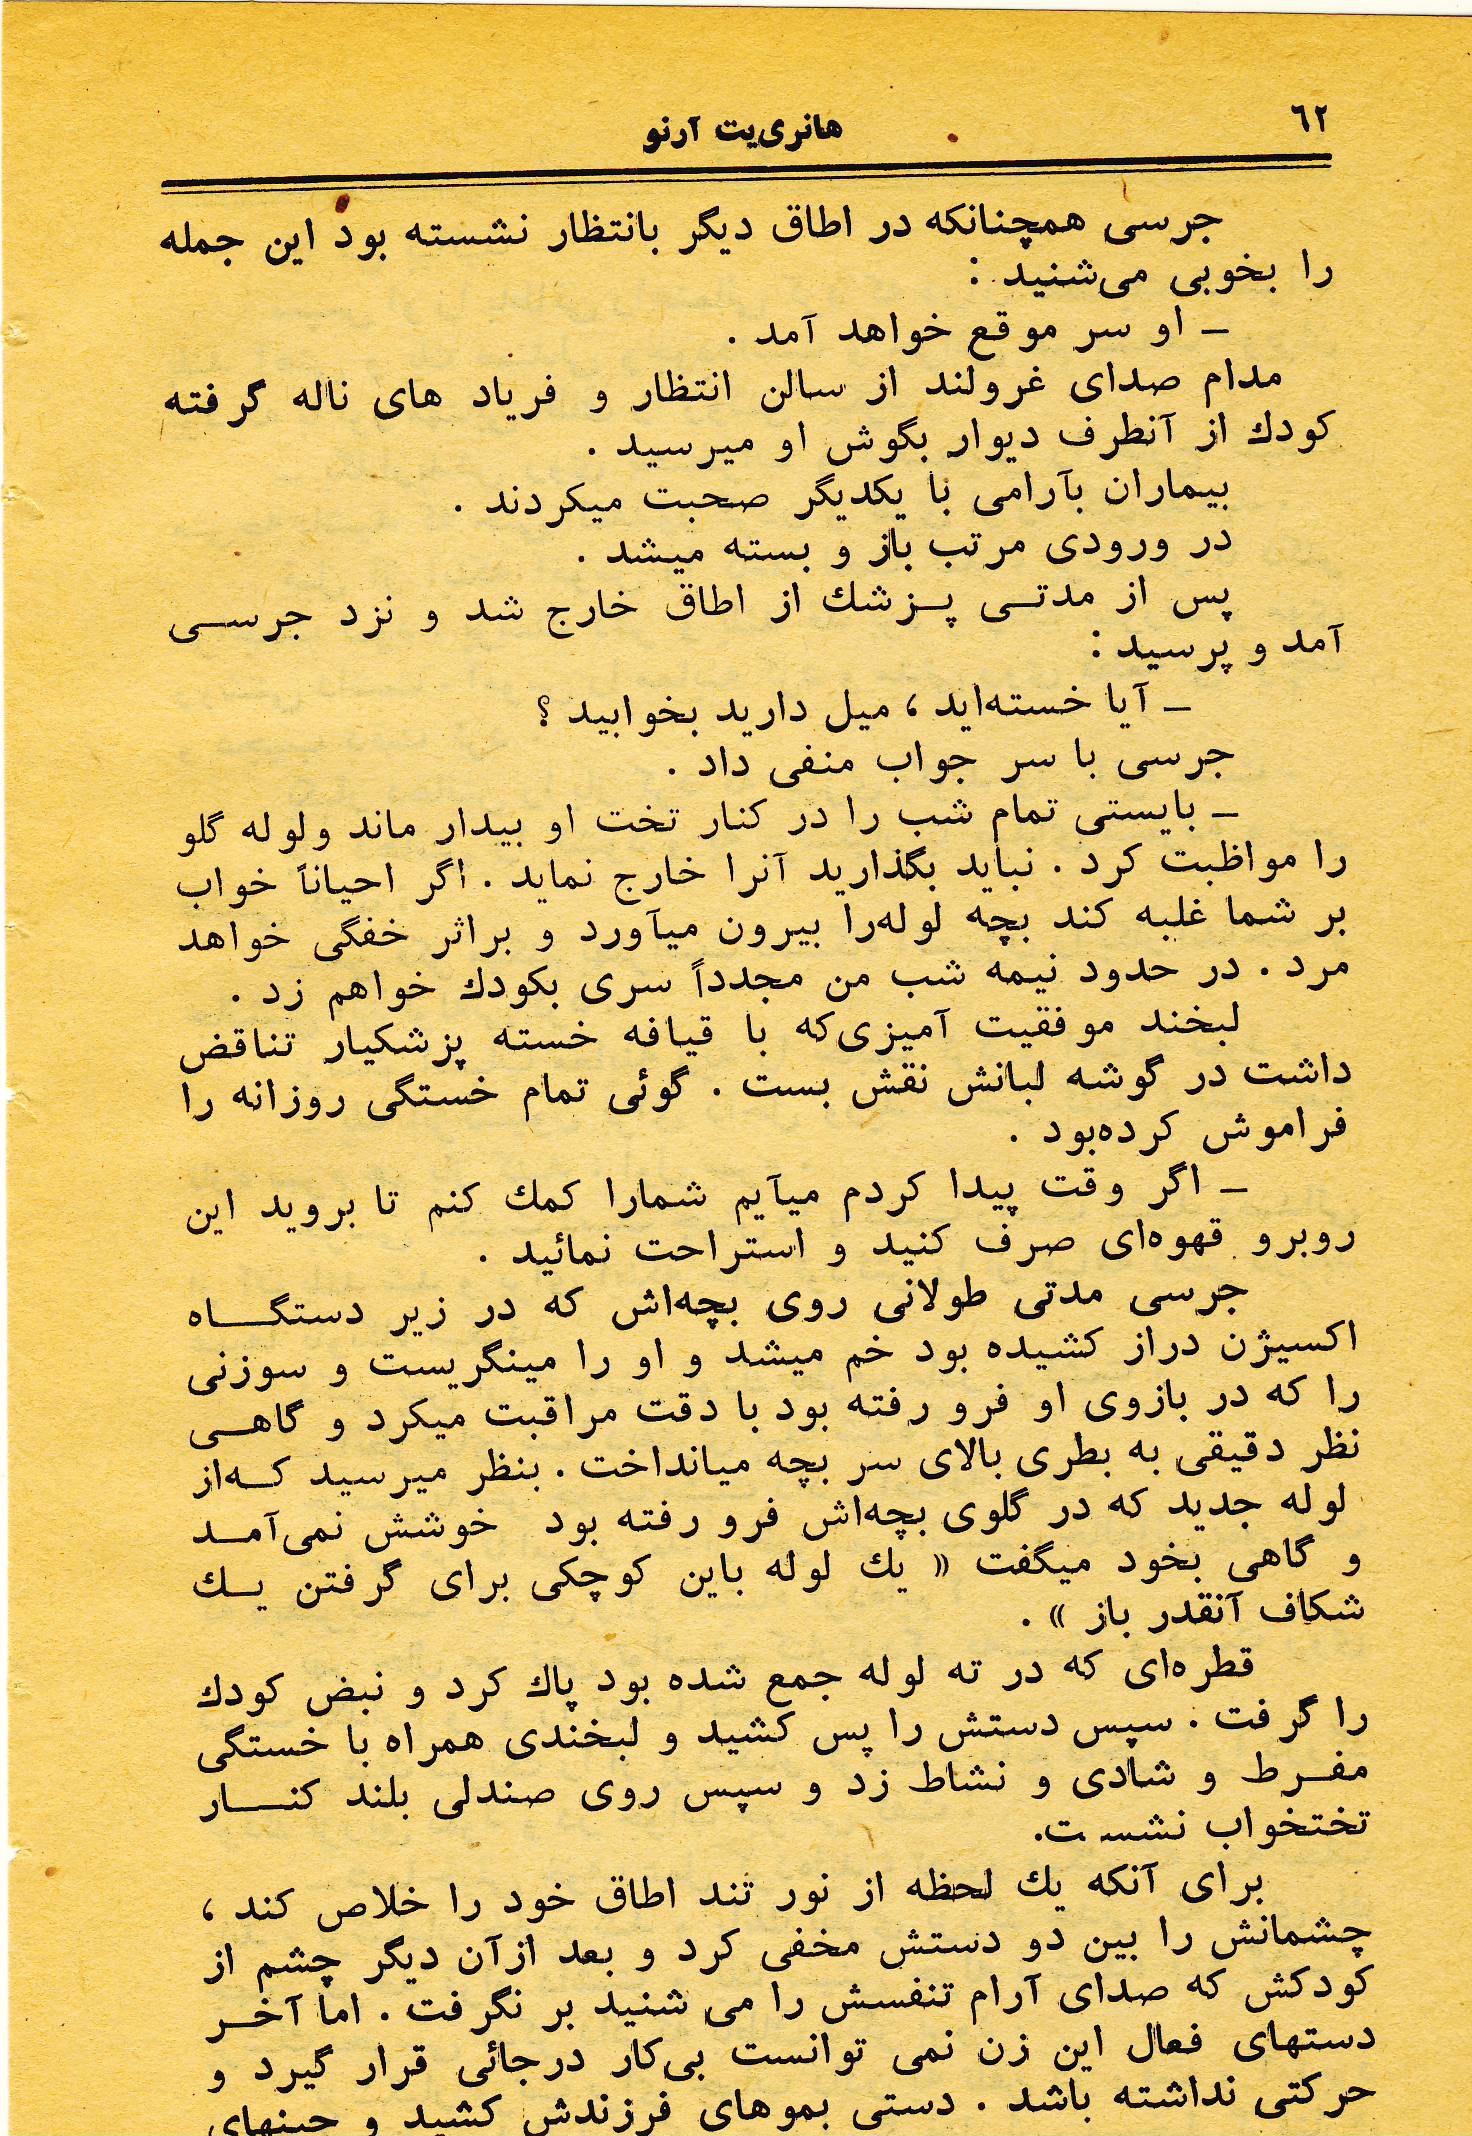 ٦٢
هانری‌یت آرنو
جرسی همچنانکه در اطاق دیگر بانتظار نشسته بود این جمله
را بخوبی می‌شنید :
ـ او سر موقع خواهد آمد .
مدام صدای غرولند از سالن انتظار و فریاد های ناله گرفته
کودك از آنطرف دیوار بگوش او میرسید .
بیماران بآرامی با یکدیگر صحبت میکردند .
در ورودی مرتب باز و بسته میشد .
پس از مدتـی پـزشك از اطاق خارج شد و نزد جرســی
آمد و پرسید :
ـ آیا خسته‌اید ، میل دارید بخوابید ؟
جرسی با سر جواب منفی داد .
ـ بایستی تمام شب را در کنار تخت او بیدار ماند ولوله گلو
را مواظبت کرد . نباید بگذارید آنرا خارج نماید . اگر احیاناً خواب
بر شما غلبه کند بچه لوله‌را بیرون میآورد و براثر خفگی خواهد
مرد . در حدود نیمه شب من مجدداً سری بکودك خواهم زد .
لبخند موفقیت آمیزی‌که با قیافه خسته پزشکیار تناقض
داشت در گوشه لبانش نقش بست . گوئی تمام خستگی روزانه را
فراموش کرده‌بود .
ـ اگر وقت پیدا کردم میآیم شمارا کمك کنم تا بروید این
روبرو قهوه‌ای صرف کنید و استراحت نمائید .
جرسی مدتی طولانی روی بچه‌اش که در زیر دستگــاه
اکسیژن دراز کشیده بود خم میشد و او را مینگریست و سوزنی
را که در بازوی او فرو رفته بود با دقت مراقبت میکرد و گاهـی
نظر دقیقی به بطری بالای سر بچه میانداخت . بنظر میرسید کـه‌از
لوله جدید که در گلوی بچه‌اش فرو رفته بود خوشش نمی‌آمـد
و گاهی بخود میگفت « یك لوله باین کوچکی برای گرفتن یـك
شکاف آنقدر باز » .
قطره‌ای که در ته لوله جمع شده بود پاك کرد و نبض کودك
را گرفت . سپس دستش را پس کشید و لبخندی همراه با خستگی
مفـرط و شادی و نشاط زد و سپس روی صندلی بلند کنــار
تختخواب نشست.
برای آنکه یك لحظه از نور تند اطاق خود را خلاص کند ،
چشمانش را بین دو دستش مخفی کرد و بعد ازآن دیگر چشم از
کودکش که صدای آرام تنفسش را می شنید بر نگرفت . اما آخـر
دستهای فعال این زن نمی توانست بی‌کار درجائی قرار گیرد و
حرکتی نداشته باشد . دستی بموهای فرزندش کشید و چینهای